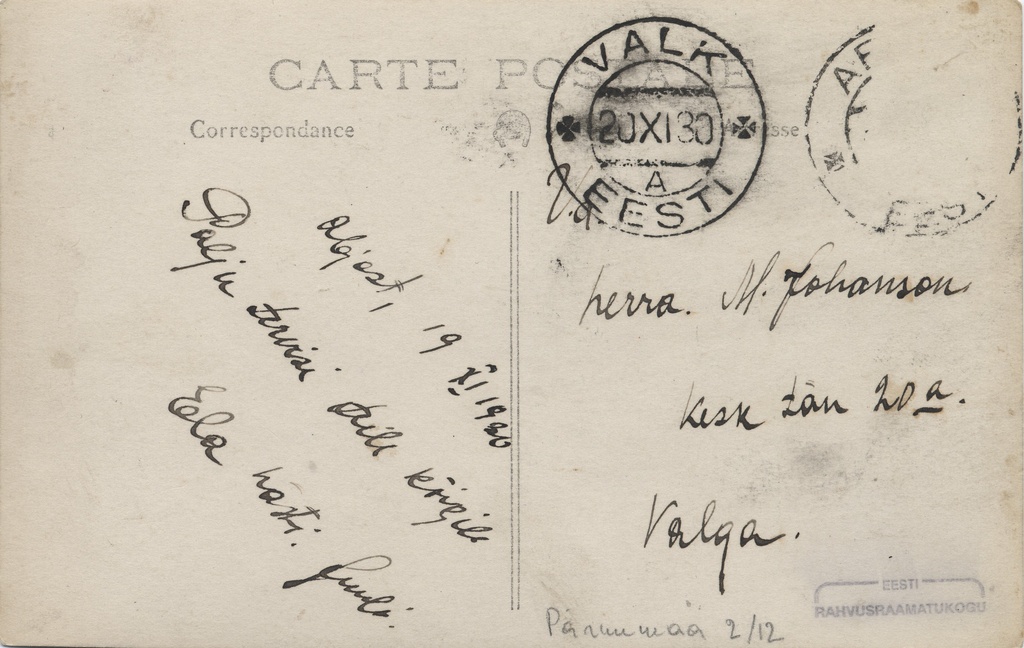 CARTE POSTALE
Correspondance
VALK
20 XI 30
A
EESTI
EESTI
19 XI 1930
Palju tervisi teile kõigile
Ela hästi.
V.a.
herra. M. Johanson
Kesk tän 20a.
Valga.
Pärnumaa 2/12
EESTI
RAHVUSRAAMATUKOGU